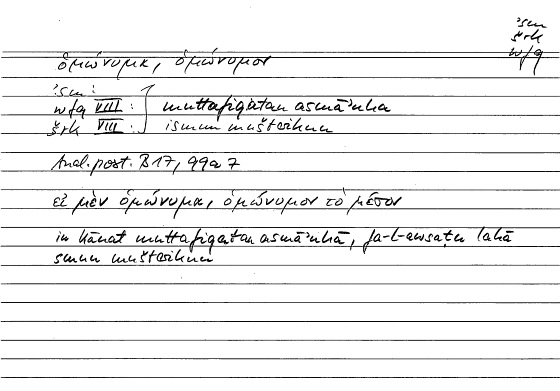 ʾsm
šrk
wfq
ὁμώνυμα, ὁμώνυμον
ʾsm :
wfq VIII : muttafiqatan asmāʾuhā
šrk VIII : ismun muštarikun
Anal. post. B 17, 99a7
εἰ μὲν ὁμώνυμα, ὁμώνυμον τὸ μέσον
in kānat muttafiqatan asmāʾuhā, fa-l-awsaṭu lahā
smun muštarikun